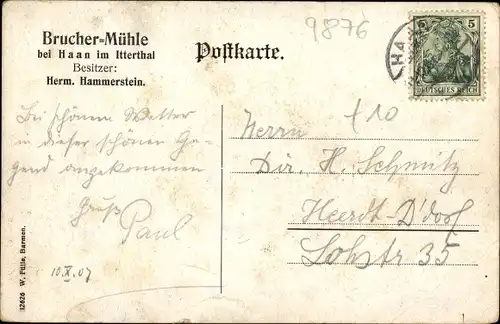 Brucher=Mühle
bei Haan im Itterthal
Besitzer:
Herm. Hammerstein.
Postkarte.
9876
HA
5 5
DEUTSCHES REICH
Bei schönem Wetter
in dieser schönen Ge-
gend angekommen
Gruß
Paul
10.X.07
+10
Herrn
Dir. H. Schmitz
Heerdt-D'dorf
Lohstr 35
12626 W. Fülle, Barmen.